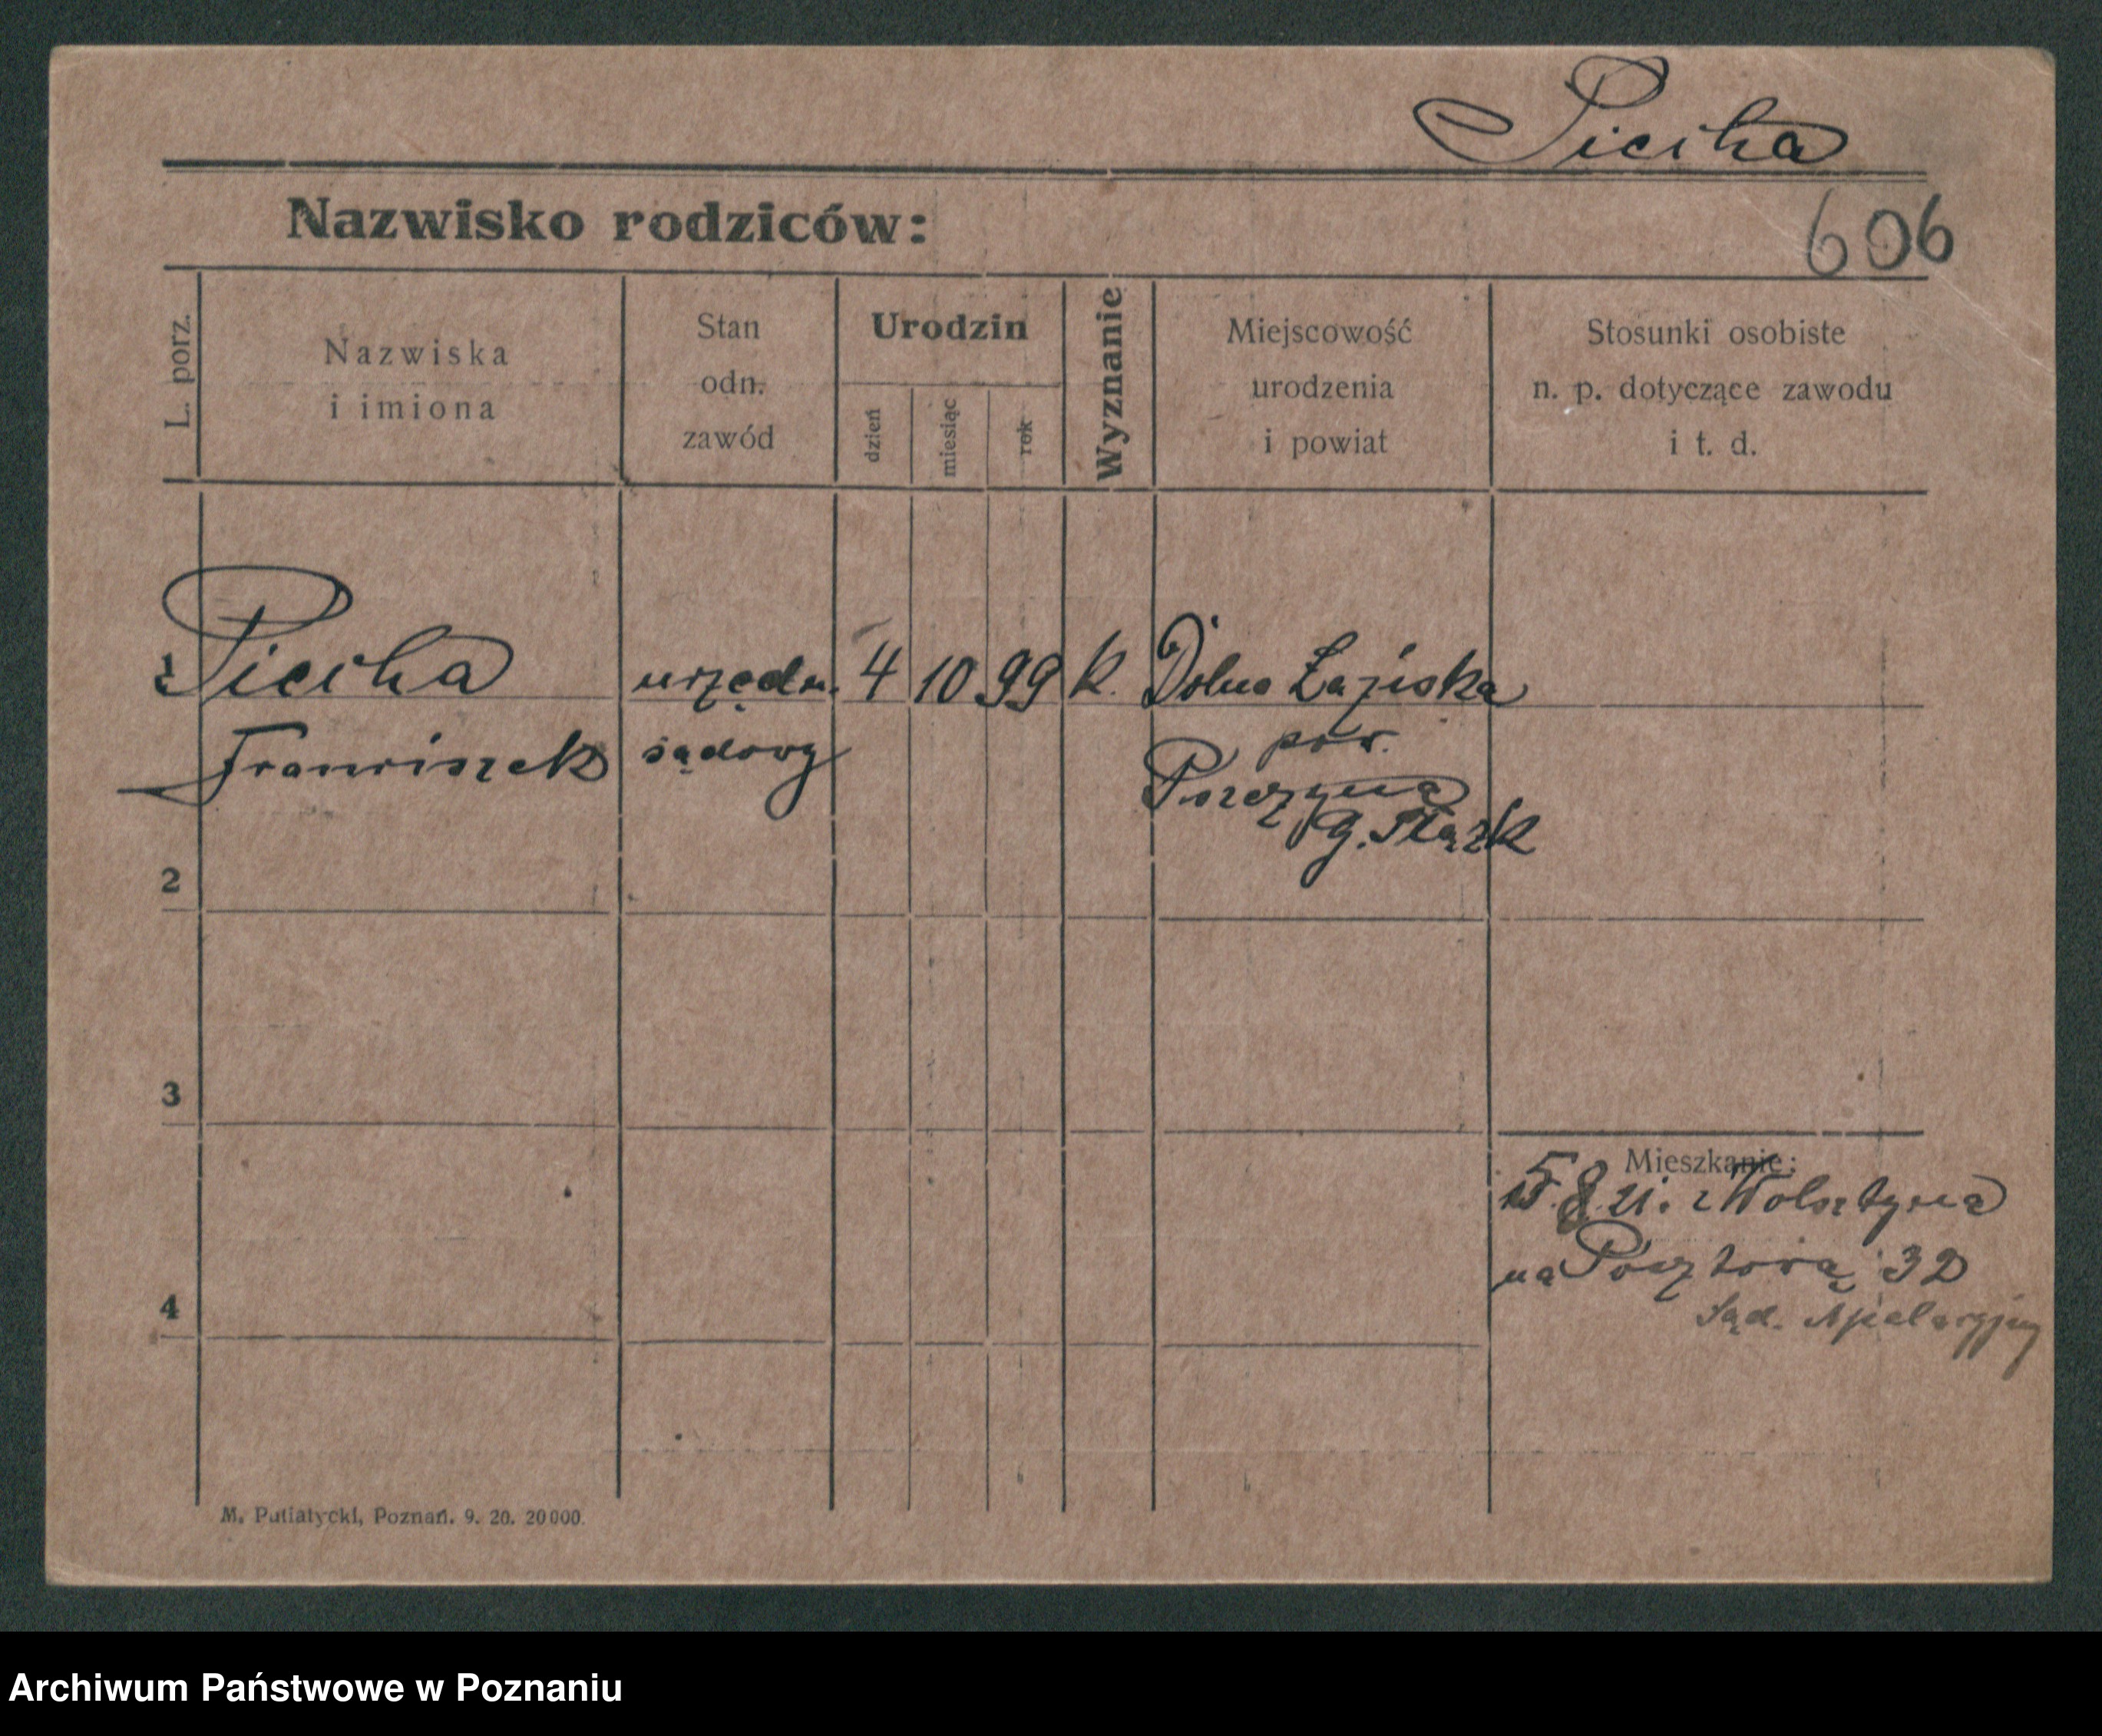 Piecha
606
Nazwisko rodziców:
L. porz.
Nazwiska
i imiona
Stan
odn.
zawód
Urodzin
dzień
miesiąc
rok
Wyznanie
Miejscowość
urodzenia
i powiat
Stosunki osobiste
n. p. dotyczące zawodu
i t. d.
1 Piecha urzędn. 4 10 99 k. Dolne Łaziska
Franciszek sądowy pow.
Pszczyna
g. Ślązk
2
3
Mieszkanie:
15.8.21. z Wolsztyna
na Pocztową 32
4
Sąd. Apelacyjny
M. Putiatycki, Poznań. 9. 20. 20000.
Archiwum Państwowe w Poznaniu